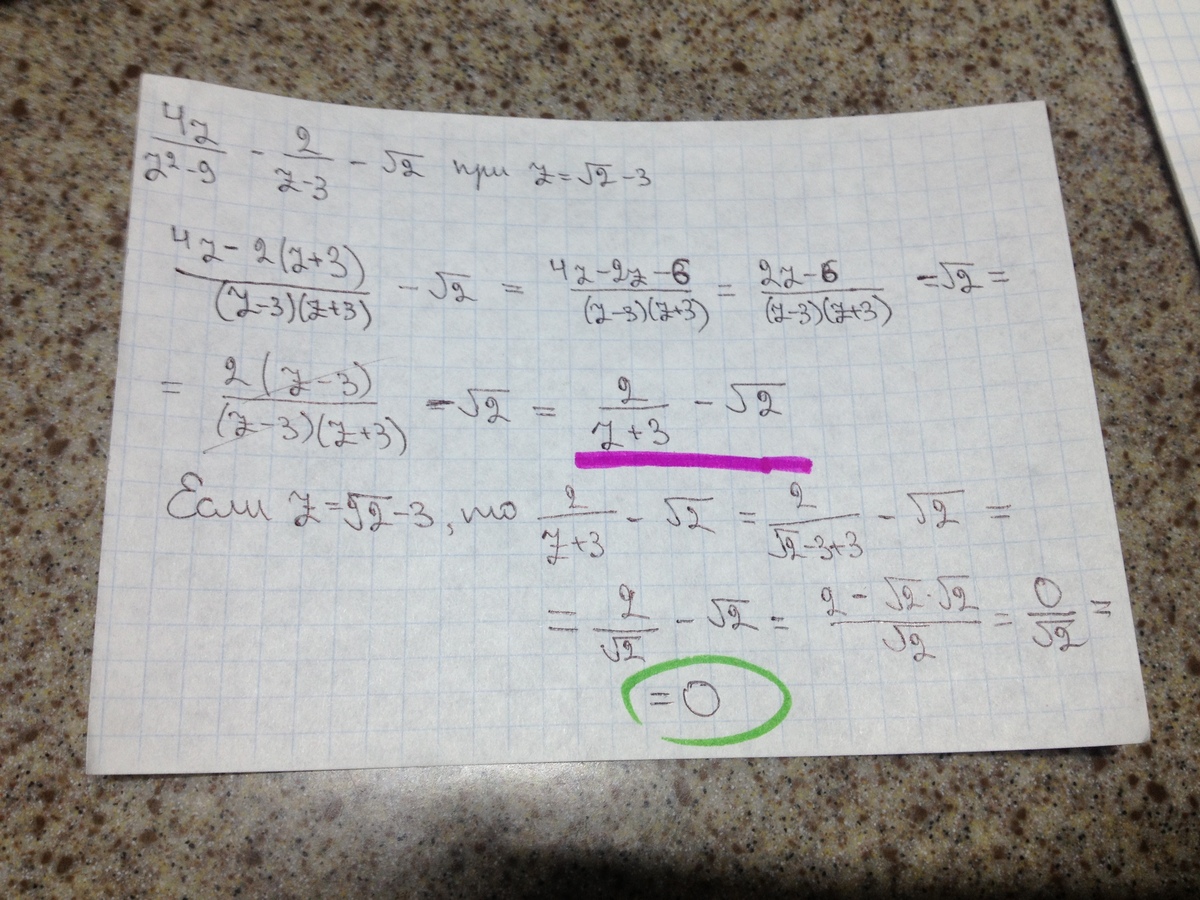 4z/(z²-9) - 2/(z-3) - √2 при z=√2-3
(4z-2(z+3))/((z-3)(z+3)) - √2 = (4z-2z-6)/((z-3)(z+3)) = (2z-6)/((z-3)(z+3)) -√2 =
= 2(z-3)/((z-3)(z+3)) -√2 = 2/(z+3) - √2
Если z=√2-3, то 2/(z+3) - √2 = 2/(√2-3+3) - √2 =
= 2/√2 - √2 = (2-√2·√2)/√2 = 0/√2 =
= 0